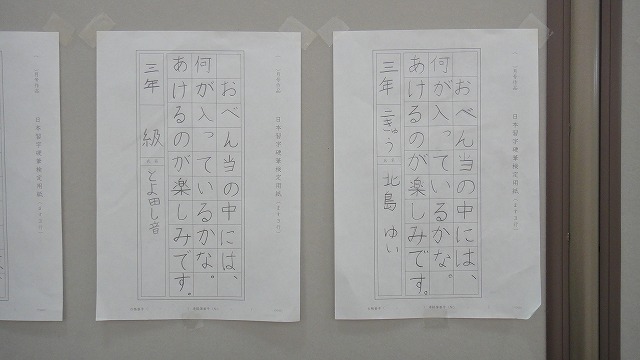 日本習字硬筆検定用紙
おべん当の中には、
何が入っているかな。
あけるのが楽しみです。
三年 二きゅう 北島 ゆい
日本習字硬筆検定用紙
おべん当の中には、
何が入っているかな。
あけるのが楽しみです。
三年 級 とよ田し音